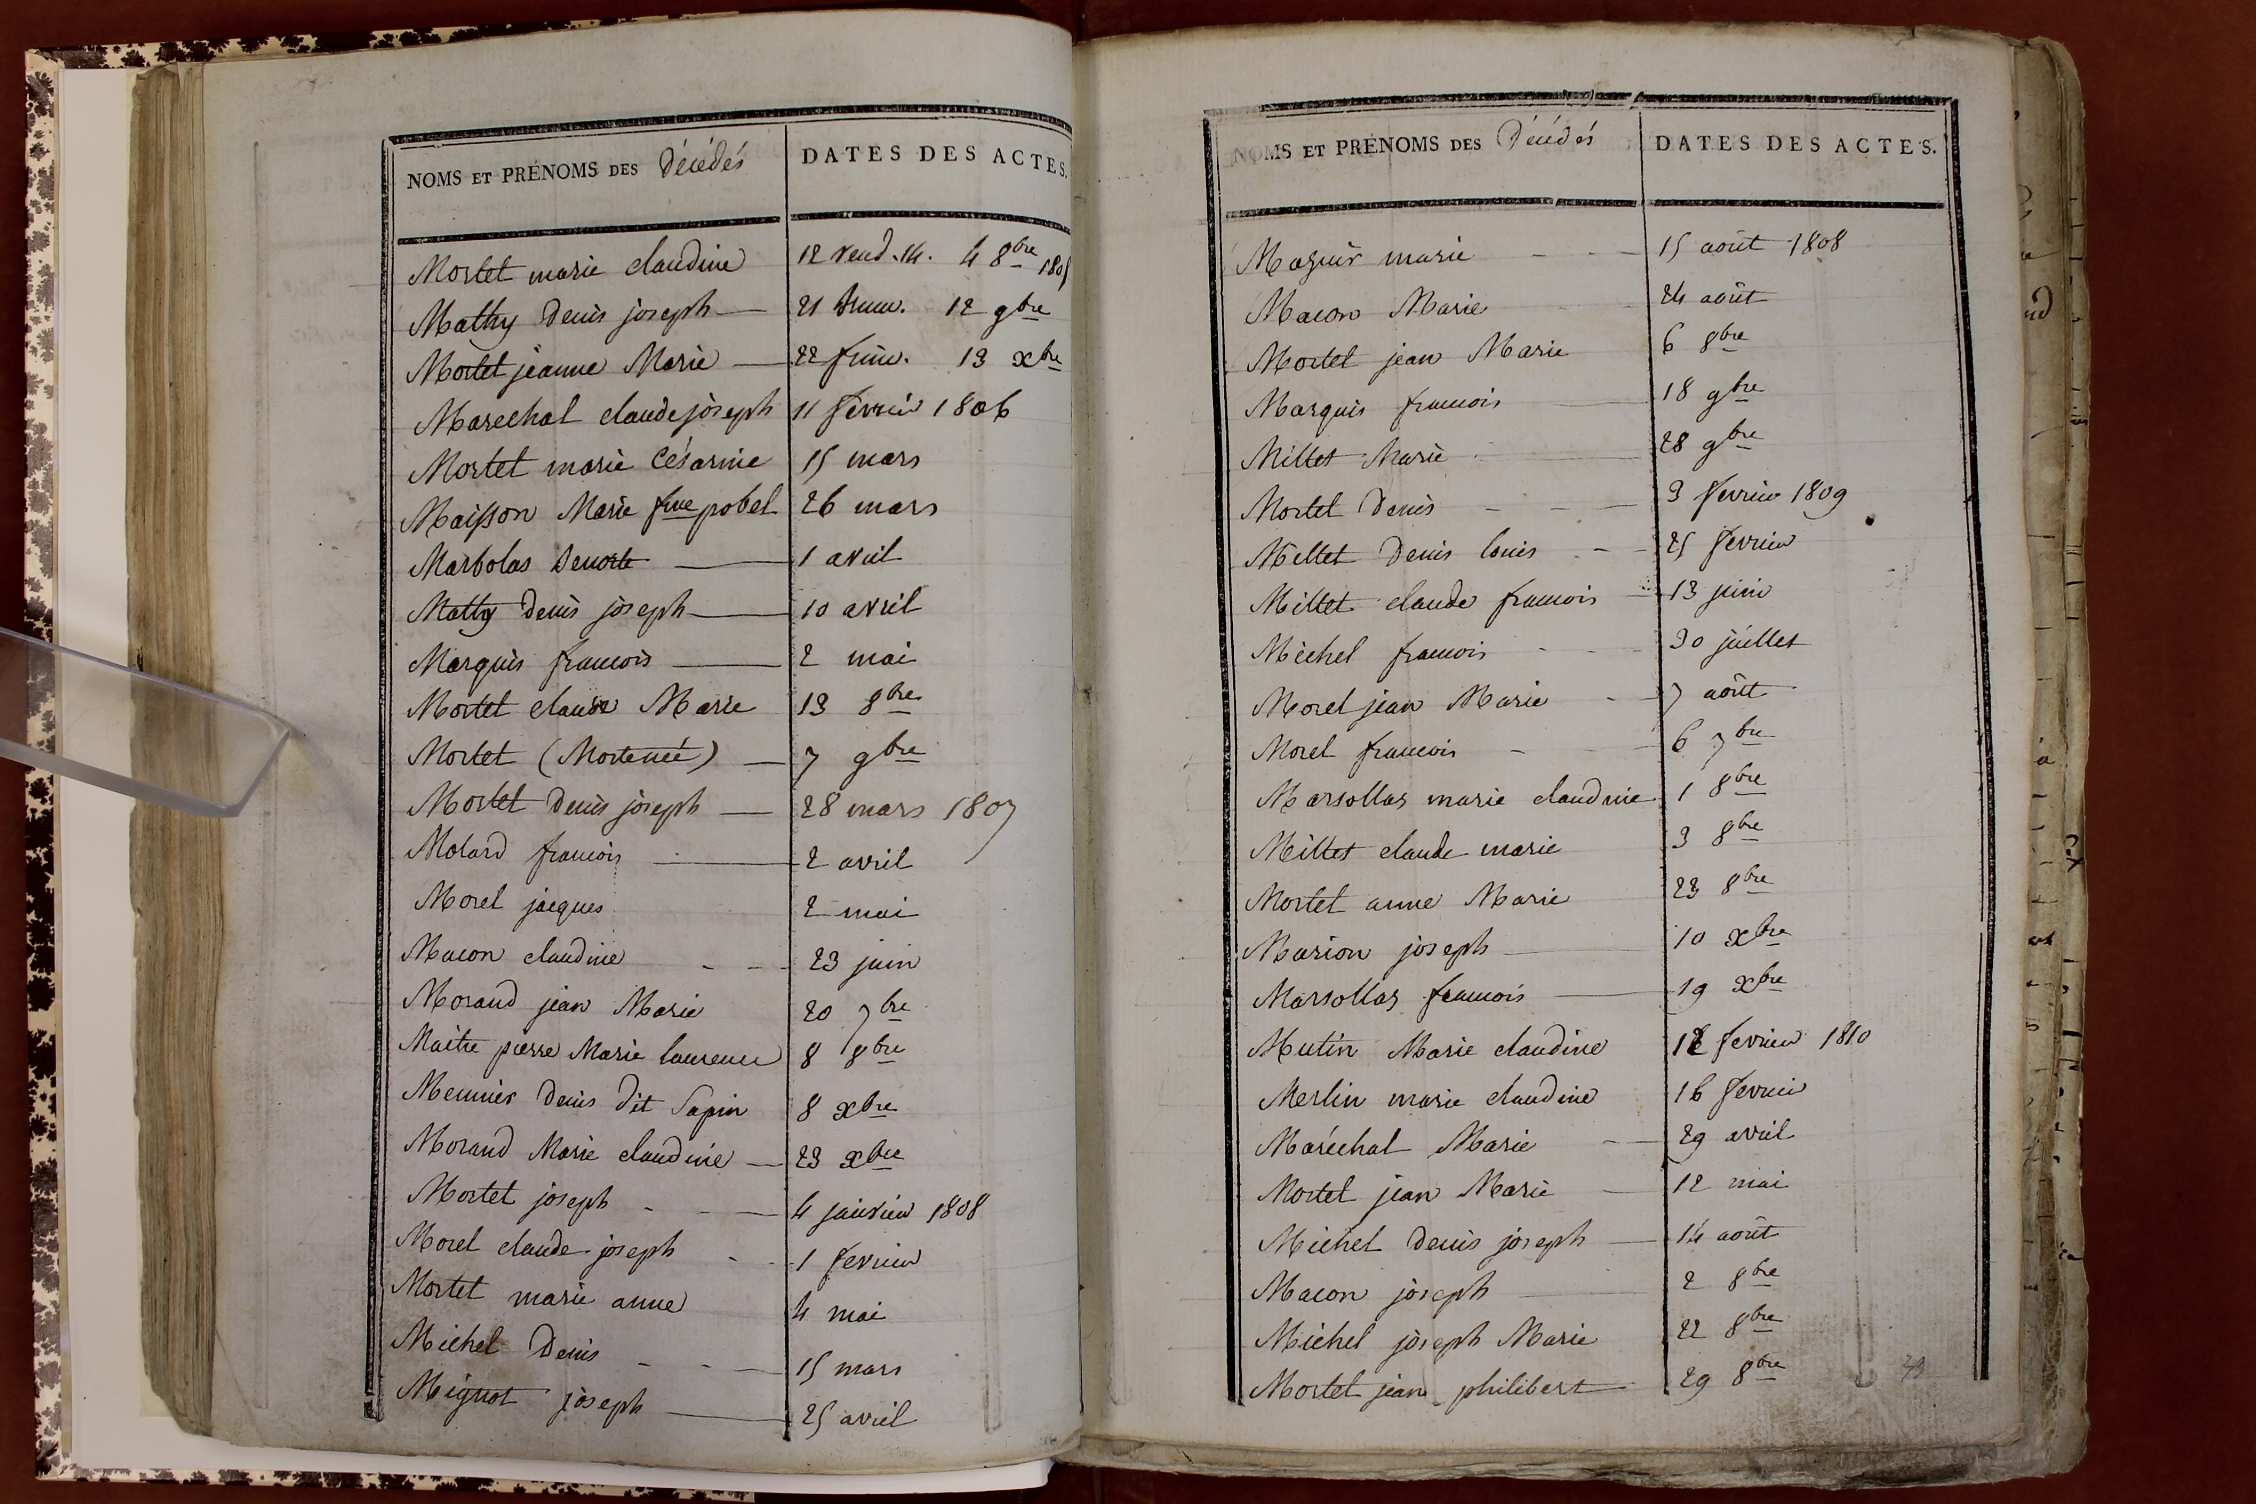 NOMS ET PRÉNOMS DES Décédés DATES DES ACTES.
Mortet marie claudine 12 vend. 14. 4 8bre 1805
Mathy Denis joseph 21 brum. 12 9bre
Mortet jeanne Marie 22 frim. 13 xbre
Marechal claude joseph 11 fevrier 1806
Mortet marie Césarine 15 mars
Maisson Marie fme pobel 26 mars
Marbolas 1 avril
Mathy Denis joseph 10 avril
Marquis francois 2 mai
Mortet claude Marie 13 8bre
Mortet (Mortené) 7 9bre
Mortet Denis joseph 28 mars 1807
Molard francois 2 avril
Morel jacques 2 mai
Macon claudine 23 juin
Morand jean Marie 20 7bre
Maitre pierre Marie laurence 8 8bre
Meunier Denis dit Sapin 8 xbre
Morand Marie claudine 23 xbre
Mortet joseph 4 janvier 1808
Morel claude joseph 1 fevrier
Mortet marie anne 4 mai
Michel Denis 15 mars
Mignot joseph 25 avril
NOMS ET PRÉNOMS DES Décédés DATES DES ACTES.
Maguir marie 15 août 1808
Macon Marie 24 août
Mortet jean Marie 6 8bre
Marquis francois 18 9bre
Millet Marie 28 9bre
Mortet Denis 3 fevrier 1809
Millet Denis louis 25 fevrier
Millet claude francois 13 juin
Michel francois 30 juillet
Morel jean Marie 7 août
Morel francois 6 7bre
Marsollas marie claudine 1 8bre
Millet claude marie 3 8bre
Mortet anne Marie 23 8bre
Marion joseph 10 xbre
Marsollas francois 19 xbre
Mutin Marie claudine 12 fevrier 1810
Merlin marie claudine 16 fevrier
Maréchal Marie 29 avril
Mortet jean Marie 12 mai
Michel Denis joseph 14 août
Macon joseph 2 8bre
Michel joseph Marie 22 8bre
Mortet jean philibert 29 8bre